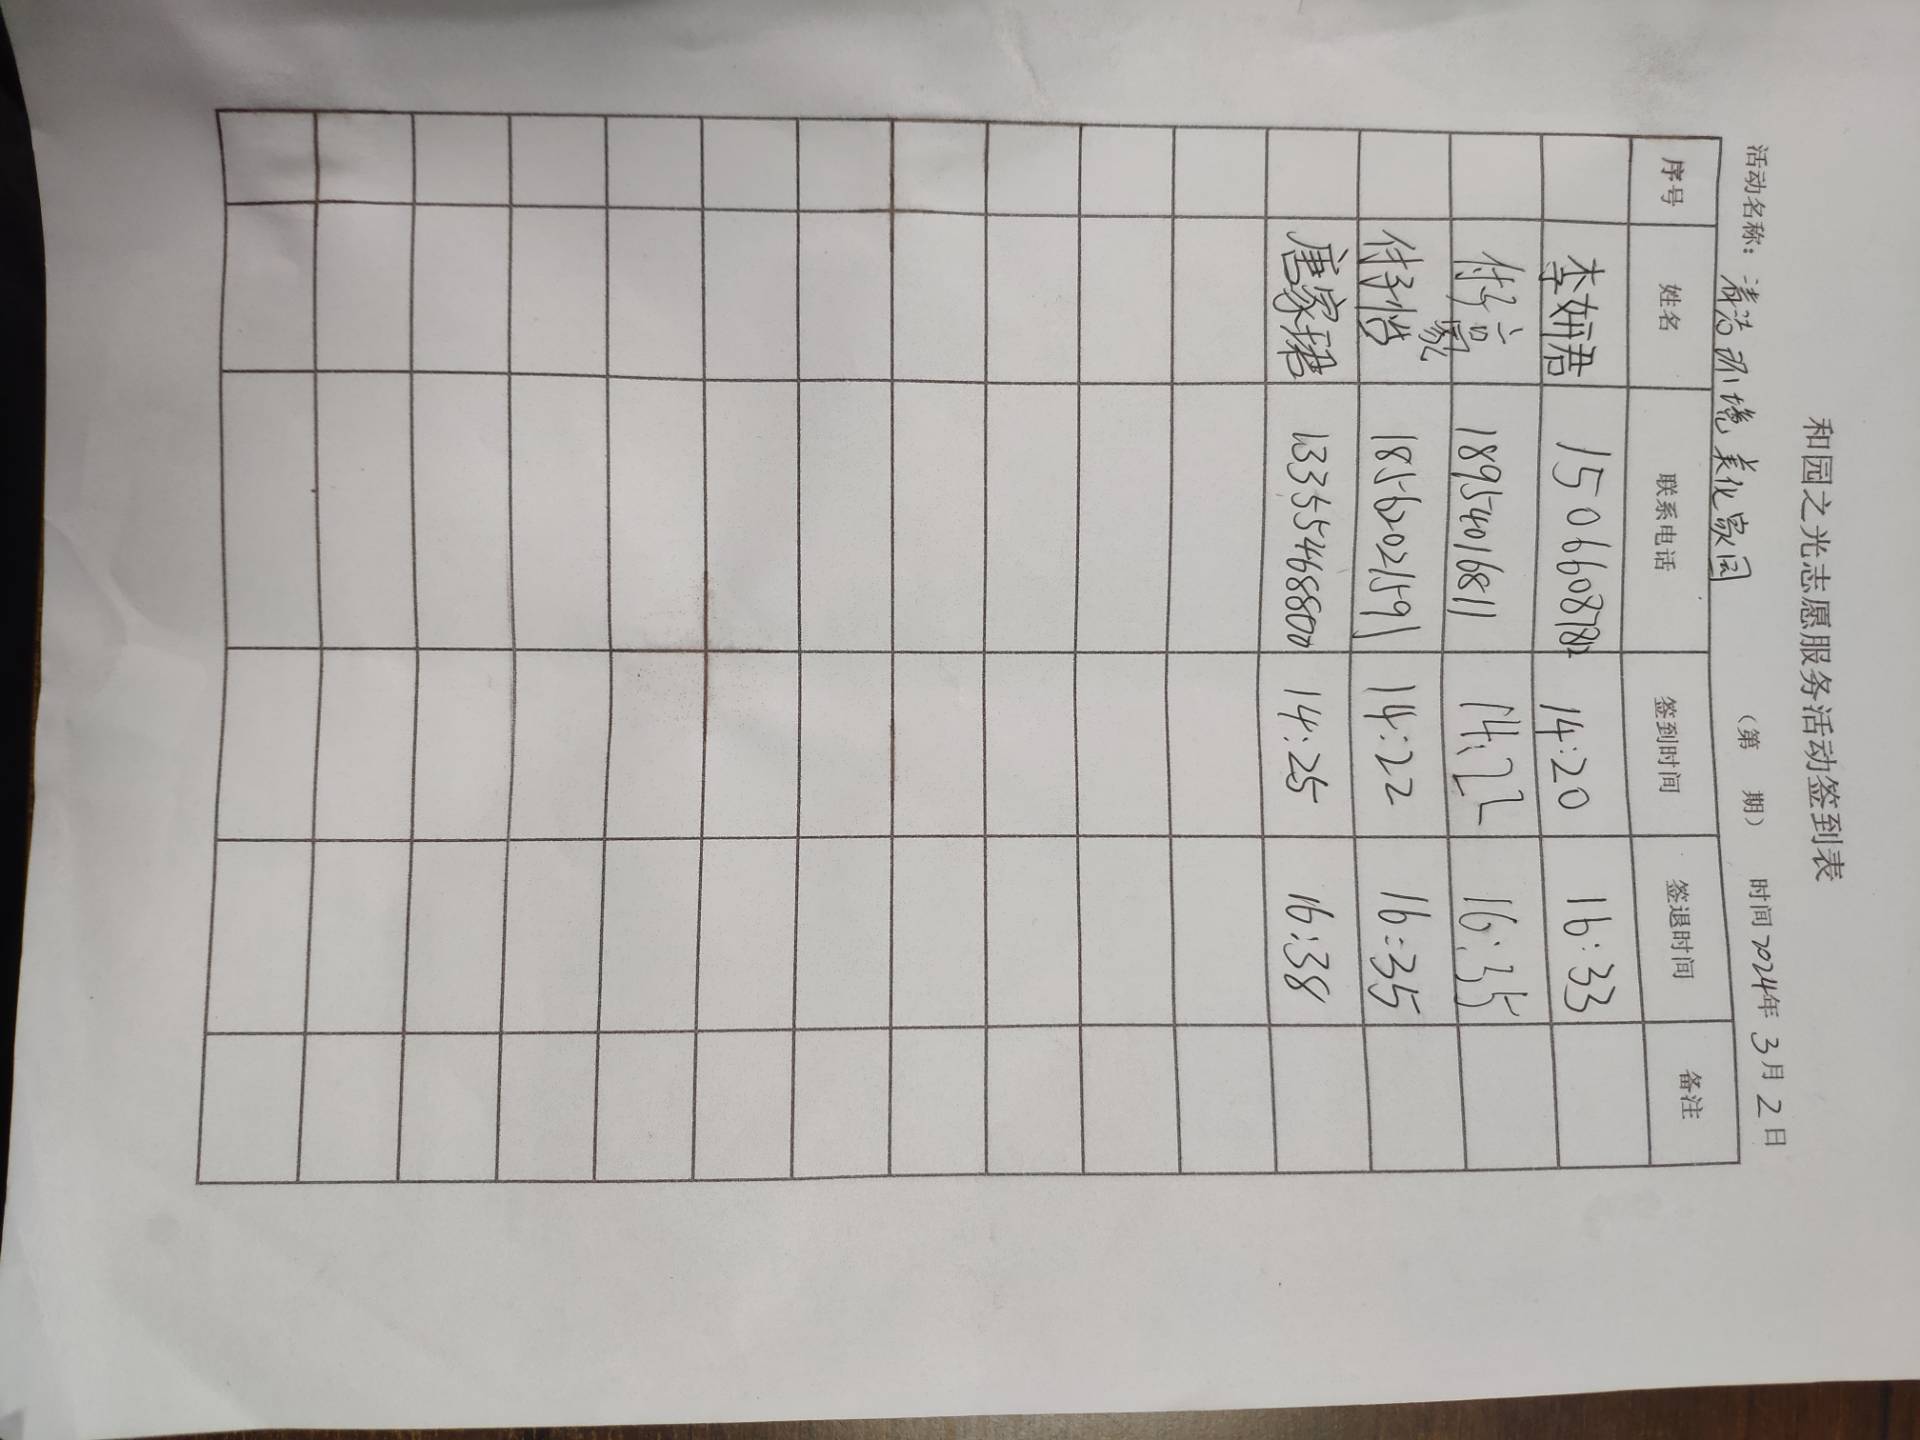 和园之光志愿服务活动签到表
活动名称：清洁环境美化家园 （第 期） 时间2024年3月2日
序号 姓名 联系电话 签到时间 签退时间 备注
李妍君 15066087812 14:20 16:33
付豪 18954016811 14:22 16:35
付子皓 18562021591 14:22 16:35
唐家珺 13355468800 14:25 16:38